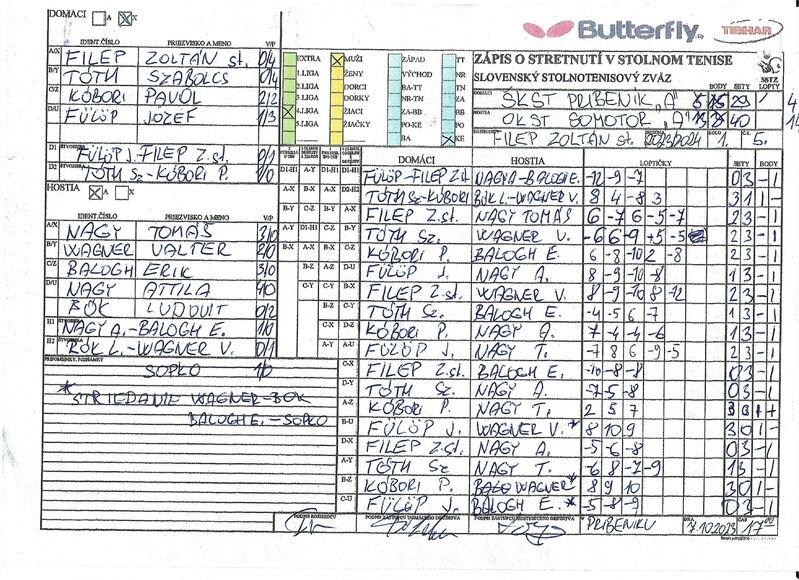 DOMÁCI A X
Butterfly TIBHAR
IDENT.ČÍSLO PRIEZVISKO A MENO V/P
A/X FILEP ZOLTÁN st. 0/4
B/Y TÓTH SZABOLCS 0/4
C/Z KÓBORI PAVOL 2/2
D/U FÜLÖP JOZEF 1/3
EXTRA
1.LIGA
2.LIGA
3.LIGA
4.LIGA
5.LIGA
MUŽI
ŽENY
DORCI
DORKY
ŽIACI
ŽIAČKY
ZÁPAD
VÝCHOD
BA-TT
NR-TN
ZA-BB
PO-KE
BA
TT
NR
TN
ZA
BB
PO
KE
ZÁPIS O STRETNUTÍ V STOLNOM TENISE
SLOVENSKÝ STOLNOTENISOVÝ ZVÄZ
SSTZ
BODY SETY LOPTY
DOMÁCI ŠKST PRIBENÍK „A" 5 29
HOSTIA OKST SOMOTOR „A" 13 40
FILEP ZOLTÁN st. 2023/2024 KOLO 1. 5.
D1 FÜLÖP J.-FILEP Z.st. 0/1
D2 TÓTH Sz-KÓBORI P. 1/0
HOSTIA A X
IDENT.ČÍSLO PRIEZVISKO A MENO V/P
A/X NAGY TOMÁŠ 3/0
B/Y WAGNER VALTER 2/0
C/Z BALOGH ERIK 3/0
D/U NAGY ATTILA 4/0
BÖK LUDOVIT 0/2
H1 NAGY A.-BALOGH E. 1/0
H2 BÖK L.-WAGNER V. 0/1
PRIPOMIENKY, POZNÁMKY
SOPKO 1/0
* STRIEDANIE WAGNER-BÖK
BALOGH E.-SOPKO
DOMÁCI HOSTIA LOPTIČKY SETY BODY
FÜLÖP-FILEP Z.st. NAGY A-BALOGH E. -12 -9 -7 0 3 -1
TÓTH Sz-KÓBORI BÖK L.-WAGNER V. 8 4 -8 3 3 1 1-
FILEP Z.st. NAGY TOMÁŠ 6 -7 6 -5 -7 2 3 -1
TÓTH Sz. WAGNER V. -6 6 -9 +5 -5 2 3 -1
KÓBORI P. BALOGH E. 6 -8 -10 2 -8 2 3 -1
FÜLÖP J. NAGY A. 8 -9 -10 -8 1 3 -1
FILEP Z.st. WAGNER V. 8 -9 -10 8 -12 2 3 -1
TÓTH Sz. BALOGH E. -4 -5 6 -7 1 3 -1
KÓBORI P. NAGY A. 7 -4 -4 -6 1 3 -1
FÜLÖP J. NAGY T. -7 8 6 -9 -5 2 3 -1
FILEP Z.st. BALOGH E. -10 -8 -8 0 3 -1
TÓTH Sz. NAGY A. -7 -5 -8 0 3 -1
KÓBORI P. NAGY T. 2 5 7
FÜLÖP J. WAGNER V.* 8 10 9 3 0 1-
FILEP Z.st. NAGY A. -5 -6 -8 0 3 -1
TÓTH Sz NAGY T. -6 8 -7 -9 1 3 -1
KÓBORI P. WAGNER* 8 9 10 3 0 1-
FÜLÖP J. BALOGH E.* -5 -8 -9 0 3 -1
PODPIS ROZHODCU
PODPIS ZÁSTUPCU DOMÁCEHO DRUŽSTVA
PODPIS ZÁSTUPCU HOSŤUJÚCEHO DRUŽSTVA
V PRIBENIKU DŇA 7.10.2023 ČAS 17:00